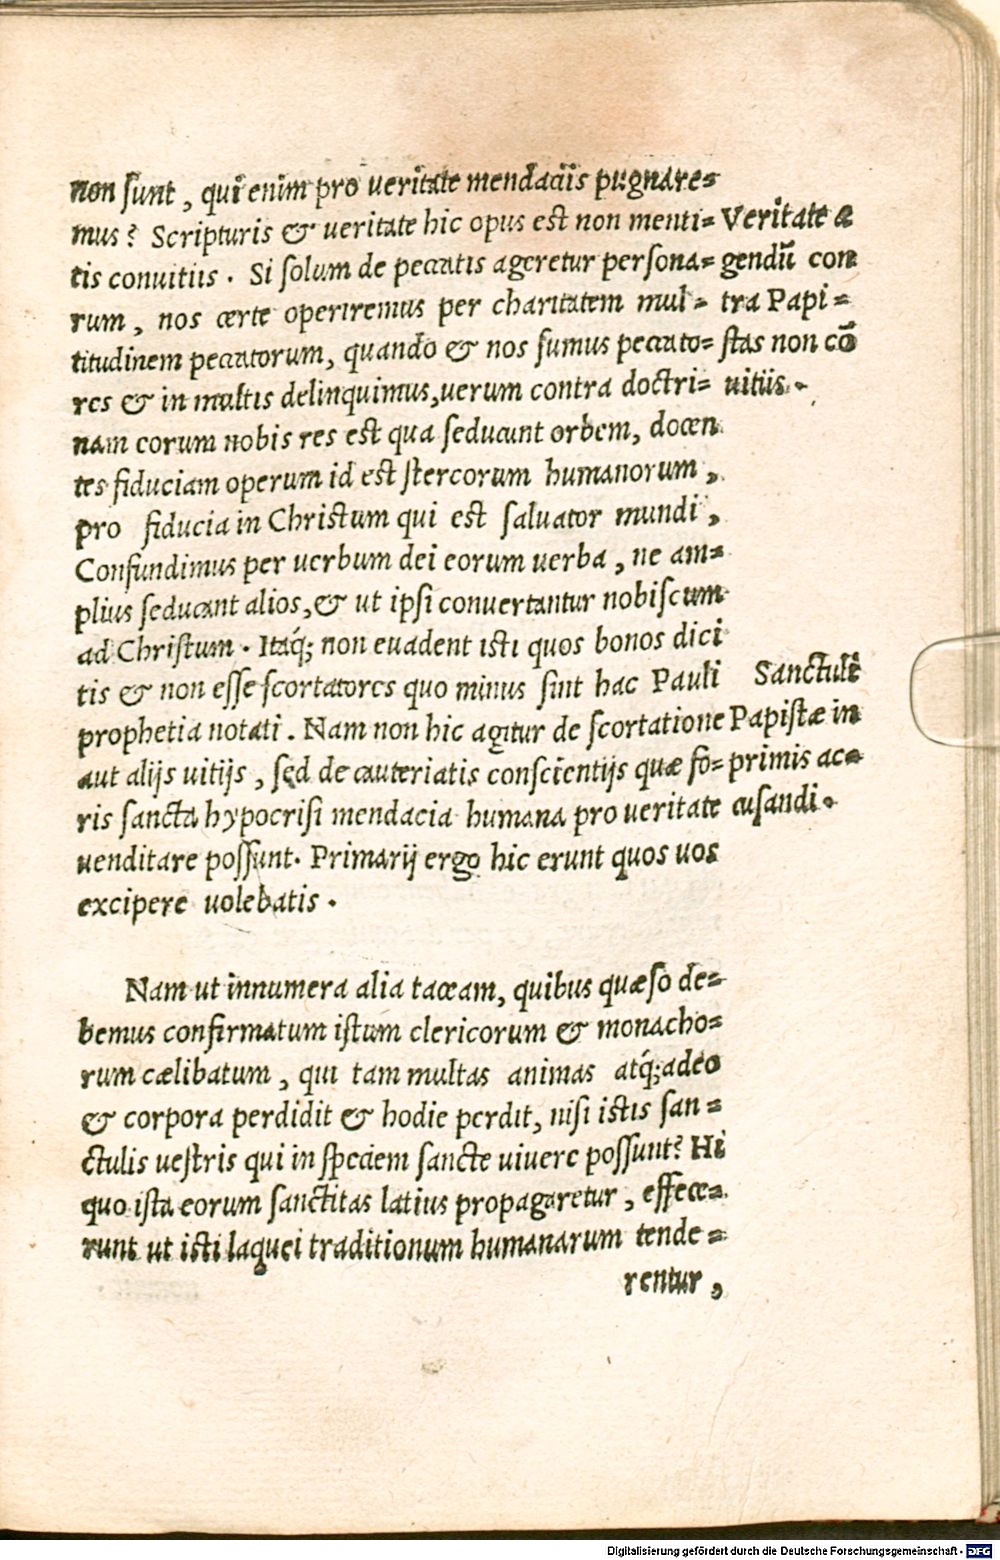 non sunt, qui enim pro veritate mendaciis pugnare-
mus? Scripturis & veritate hic opus est non menti-
tis convitiis. Si solum de peccatis ageretur persona-
rum, nos certe operiremus per charitatem mul-
titudinem peccatorum, quando & nos sumus peccato-
res & in multis delinquimus, uerum contra doctri-
nam eorum nobis res est qua seducunt orbem, docen
tes fiduciam operum id est stercorum humanorum,
pro fiducia in Christum qui est saluator mundi,
Confundimus per uerbum dei eorum uerba, ne am-
plius seducant alios, & ut ipsi conuertantur nobiscum
ad Christum. Itaq; non evadent isti quos bonos dici
tis & non esse scortatores quo minus sint hac Pauli
prophetia notati. Nam non hic agitur de scortatione
aut alijs uitijs, sed de cauteriatis conscientijs quæ fo-
ris sancta hypocrisi mendacia humana pro ueritate
uenditare possunt. Primarij ergo hic erunt quos uos
excipere uolebatis.
Veritate a
gendū con
tra Papi-
stas non cō
uitiis.
Sanctuli
Papistæ in
primis ac-
cusandi.
Nam ut innumera alia taceam, quibus quæso de-
bemus confirmatum istum clericorum & monacho-
rum cælibatum, qui tam multas animas atq; adeo
& corpora perdidit & hodie perdit, nisi istis san-
ctulis uestris qui in speciem sancte uiuere possunt? Hi
quo ista eorum sanctitas latius propagaretur, effece-
runt ut isti laquei traditionum humanarum tende-
rentur,
Digitalisierung gefördert durch die Deutsche Forschungsgemeinschaft - DFG